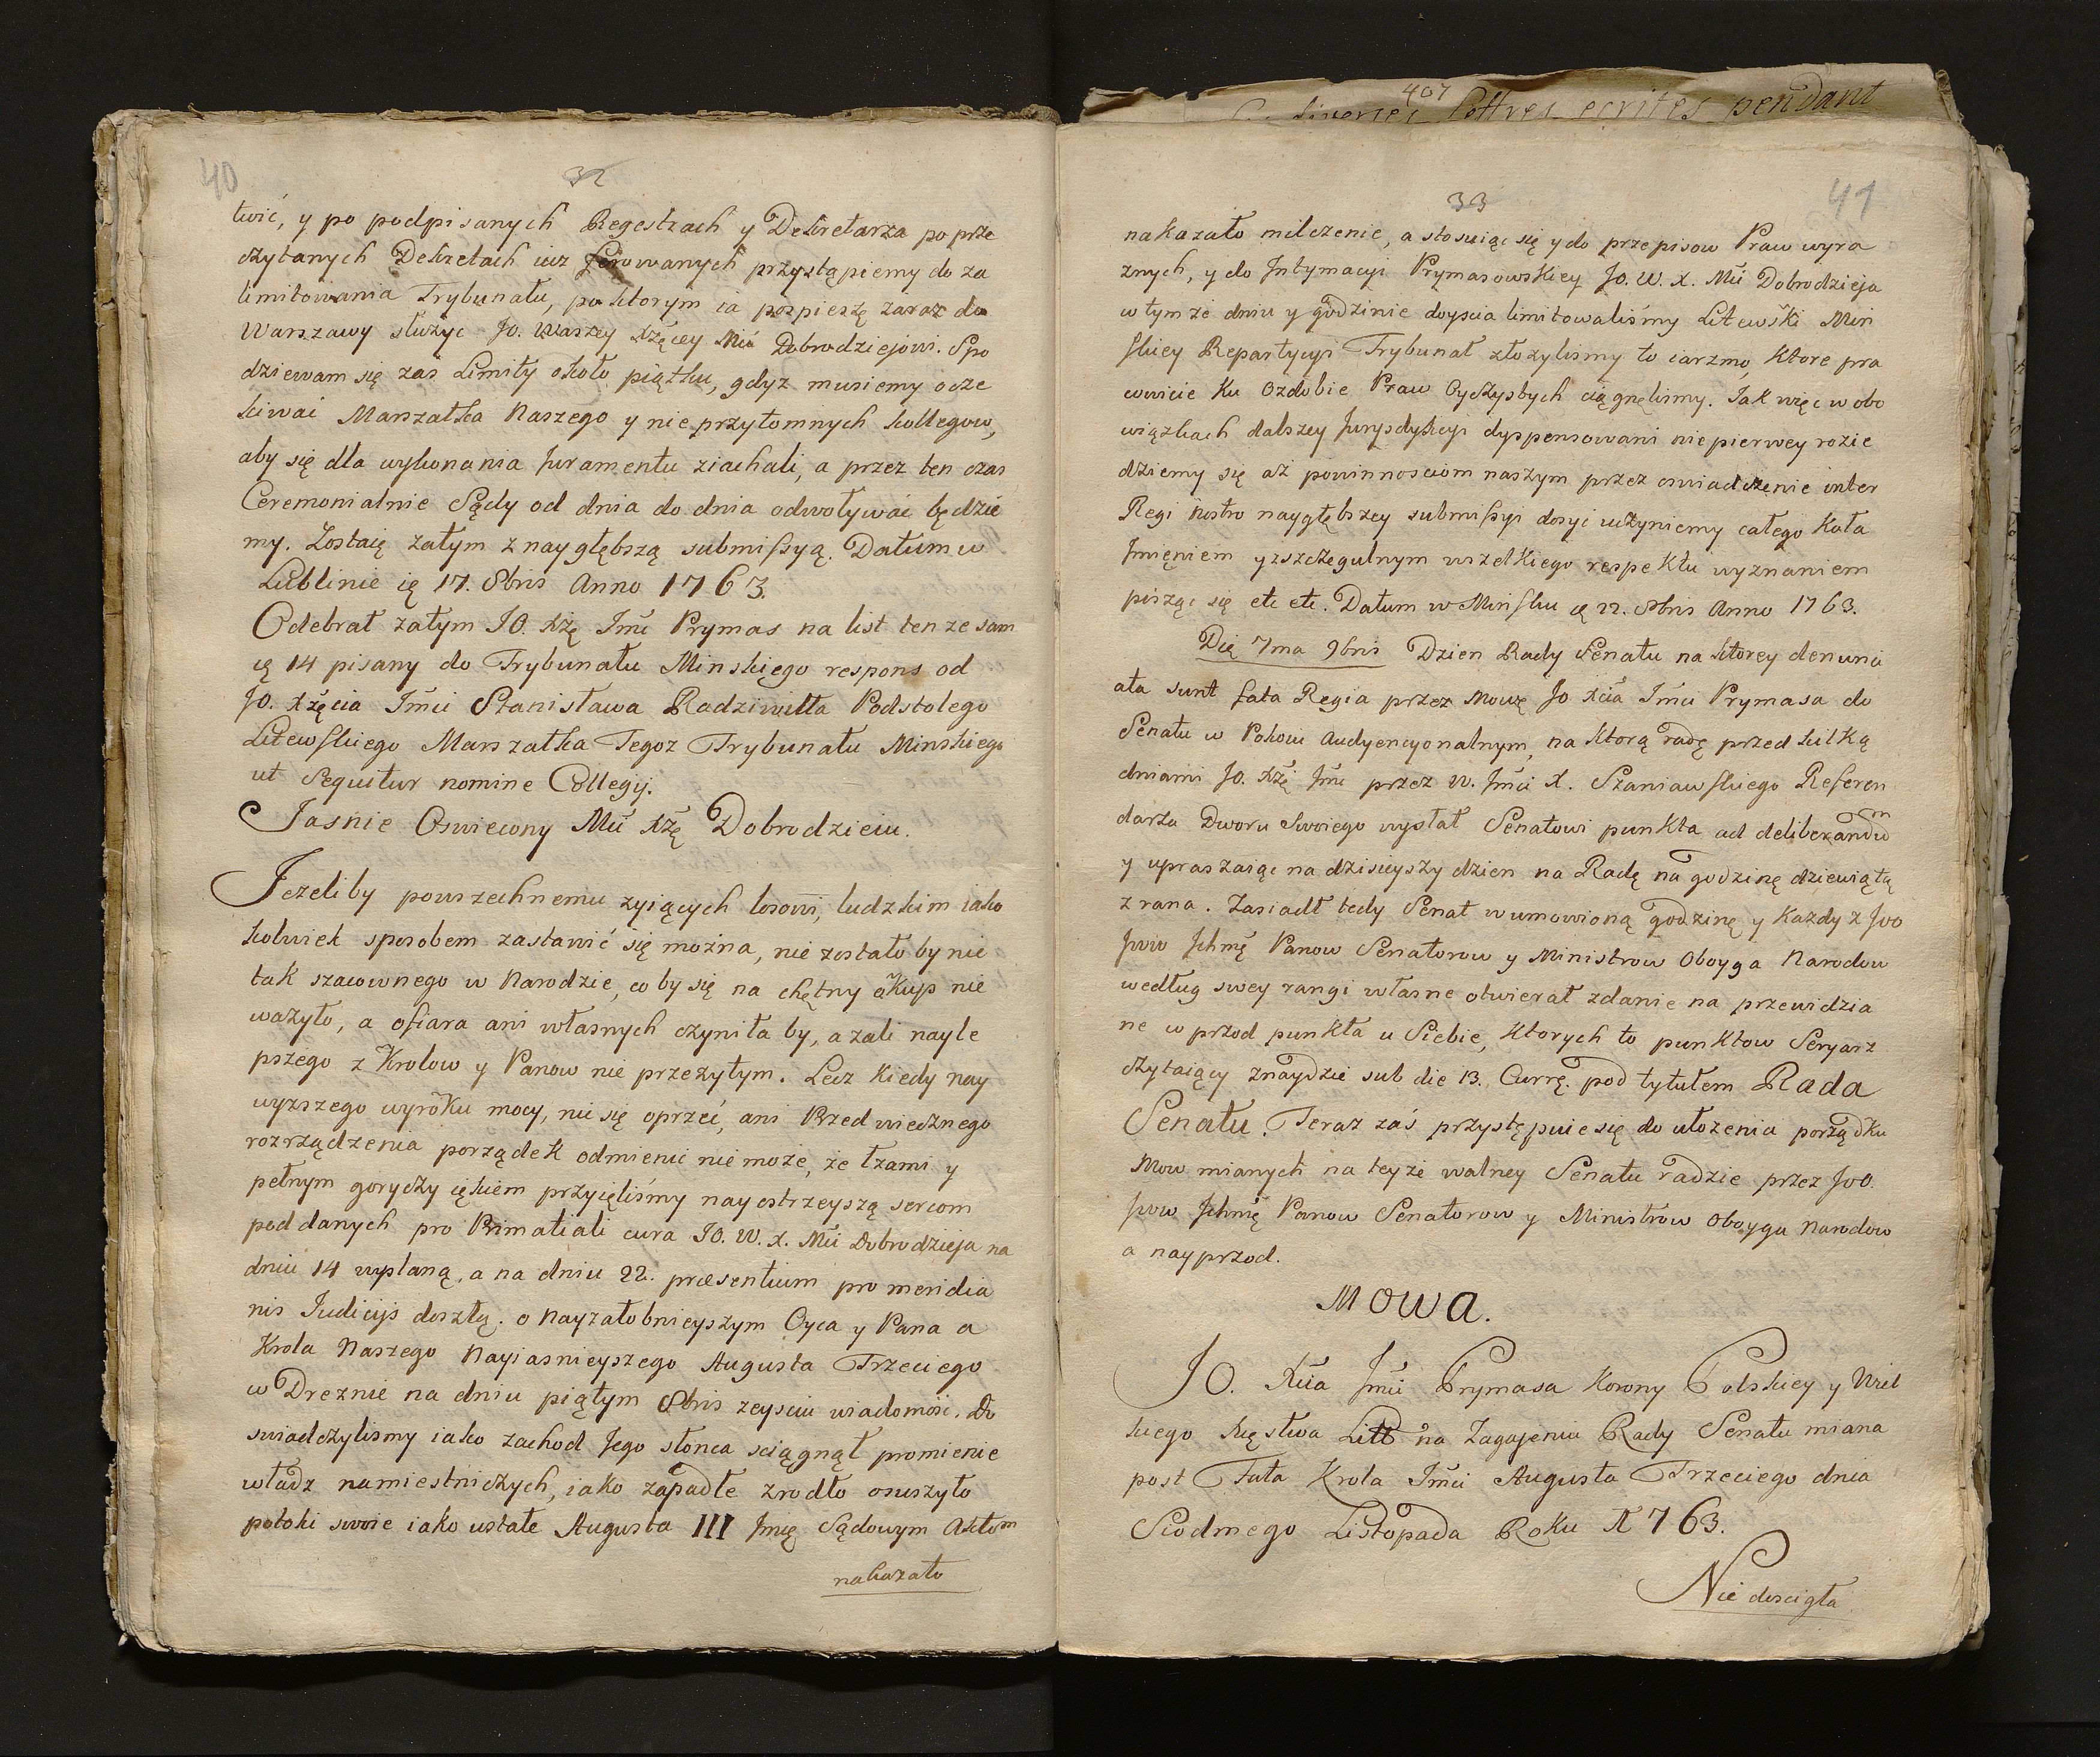 40
32
twić, y po podpisanych Regestrach y Dekretarza po prze
czytanych Dekretach iuz ferowanych przystąpiemy do za
limitowania Trybunału, po ktorym ia pospieszę zaraz do
Warszawy słuzyc Jo. Waszey Xżęcey Mci Dobrodziejowi. Spo
dziewam się zas Limity około piątku, gdyz musiemy ocze
kiwać Marszałka Naszego y nie przytomnych kollegow,
aby się dla wykonania Juramentu ziachali, a przez ten czas
Ceremonialnie Sądy od dnia do dnia odwoływać będzie
my. Zostaię zatym z naygłębszą submissyą. Datum w
Lublinie ię 17. 8bris Anno 1763.
Odebrał zatym JO. Xżę Jmć Prymas na list ten ze sam
ię 14 pisany do Trybunału Minskiego respons od
Jo. Xżęcia Jmći Stanisława Radziwiłła Podstolego
Litewskiego Marszałka Tegoz Trybunału Minskiego
ut Sequitur nomine Collegij.
Jasnie Oswiecony Mći Xżę Dobrodzieiu.
Jezeliby powszechnemu zyiących losowi, ludzkim iako
kolwiek sposobem zastawić się można, nie zostało by nic
tak szacownego w Narodzie, co by się na chętny okup nie
wazyło, a ofiara ani własnych czyniła by, a zali nayle
pszego z Krolow y Panow nie przezytym. Lecz kiedy nay
wyzszego wyroku mocy, nic się oprzeć, ani Przedwiecznego
rozrządzenia porządek odmienić nie może, ze łzami y
pełnym goryczy iękiem przyięliśmy nayostrzeyszą sercom
poddanych pro Primatiali cura JO. W. X. Mći Dobrodzieja na
dniu 14 wysłaną, a na dniu 22. præsentium pro meridia
nis Judicijs doszłą. o nayzałobnieyszym Oyca y Pana a
Krola Naszego Nayiasnieyszego Augusta Trzeciego
w Dreznie na dniu piątym 8bris zeysciu wiadomość. Do
swiadczylismy iako zachod Jego słonca sciągnął promienie
władz namiestniczych, iako zapadłe zrodło osuszyło
potoki swoie iako ustałe Augusta III Jmię Sądowym Aktom
nakazało
407
diverses lettres ecrites pendant
33
41
nakazało milczenie, a stosuiąc się y do przepisow Praw wyra
znych, y do Intymacyi Prymasowskiey Jo. W. X. Mći Dobrodzieja
w tym że dniu y godzinie doyscia limitowaliśmy Litewski Min
skiey Repartycyi Trybunał złozylismy to iarzmo, ktore pra
cowicie ku ozdobie Praw Oyczystych ciągnęlismy. Jak więc w obo
wiązkach dalszey Jurysdykcyi dyspensowani niepierwey rozie
dziemy się aż powinnosciom naszym przez oswiadczenie inter
Regi nostro naygłębszey submissyi dosyć uczyniemy całego Koła
Jmięniem y zszczegulnym wszelkiego respektu wyznaniem
pisząc się etc etc. Datum w Minsku ię 22. 8bris Anno 1763.
Dię 7ma 9bris Dzien Rady Senatu na ktorey denunci
ata sunt fata Regia przez Mowę Jo Xcia Jmći Prymasa do
Senatu w Pokoiu Audyencyonalnym, na ktorą radę przed kilką
dniami Jo. Xżę Jmć przez W. Jmći X. Szaniawskiego Referen
darza Dworu Swoiego wysłał Senatowi punkta ad deliberandum
y upraszaiąc na dzisieyszy dzien na Radę na godzinę dziewiątą
z rana. Zasiadł tedy Senat w umowioną godzinę y Kazdy z Joo
Jww Ichmę Panow Senatorow y Ministrow Oboyga Narodow
według swey rangi własne otwierał zdanie na przewidzia
ne w przod punkta u Siebie, Ktorych to punktow Seryarz
czytaiący znaydzie sub die 13. Currę. pod tytułem Rada
Senatu. Teraz zaś przystępuie się do ułozenia porządku
Mow mianych na teyze walney Senatu radzie przez Joo.
Jww Ichmę Panow Senatorow y Ministrow oboyga Narodow
a nayprzod.
Mowa.
JO. Xcia Jmći Prymasa Korony Polskiey y Wiel
kiego Xięstwa Litt na Zagajeniu Rady Senatu miana
post Fata Krola Jmći Augusta Trzeciego dnia
Siodmego Listopada Roku 1763.
Nie doscigła